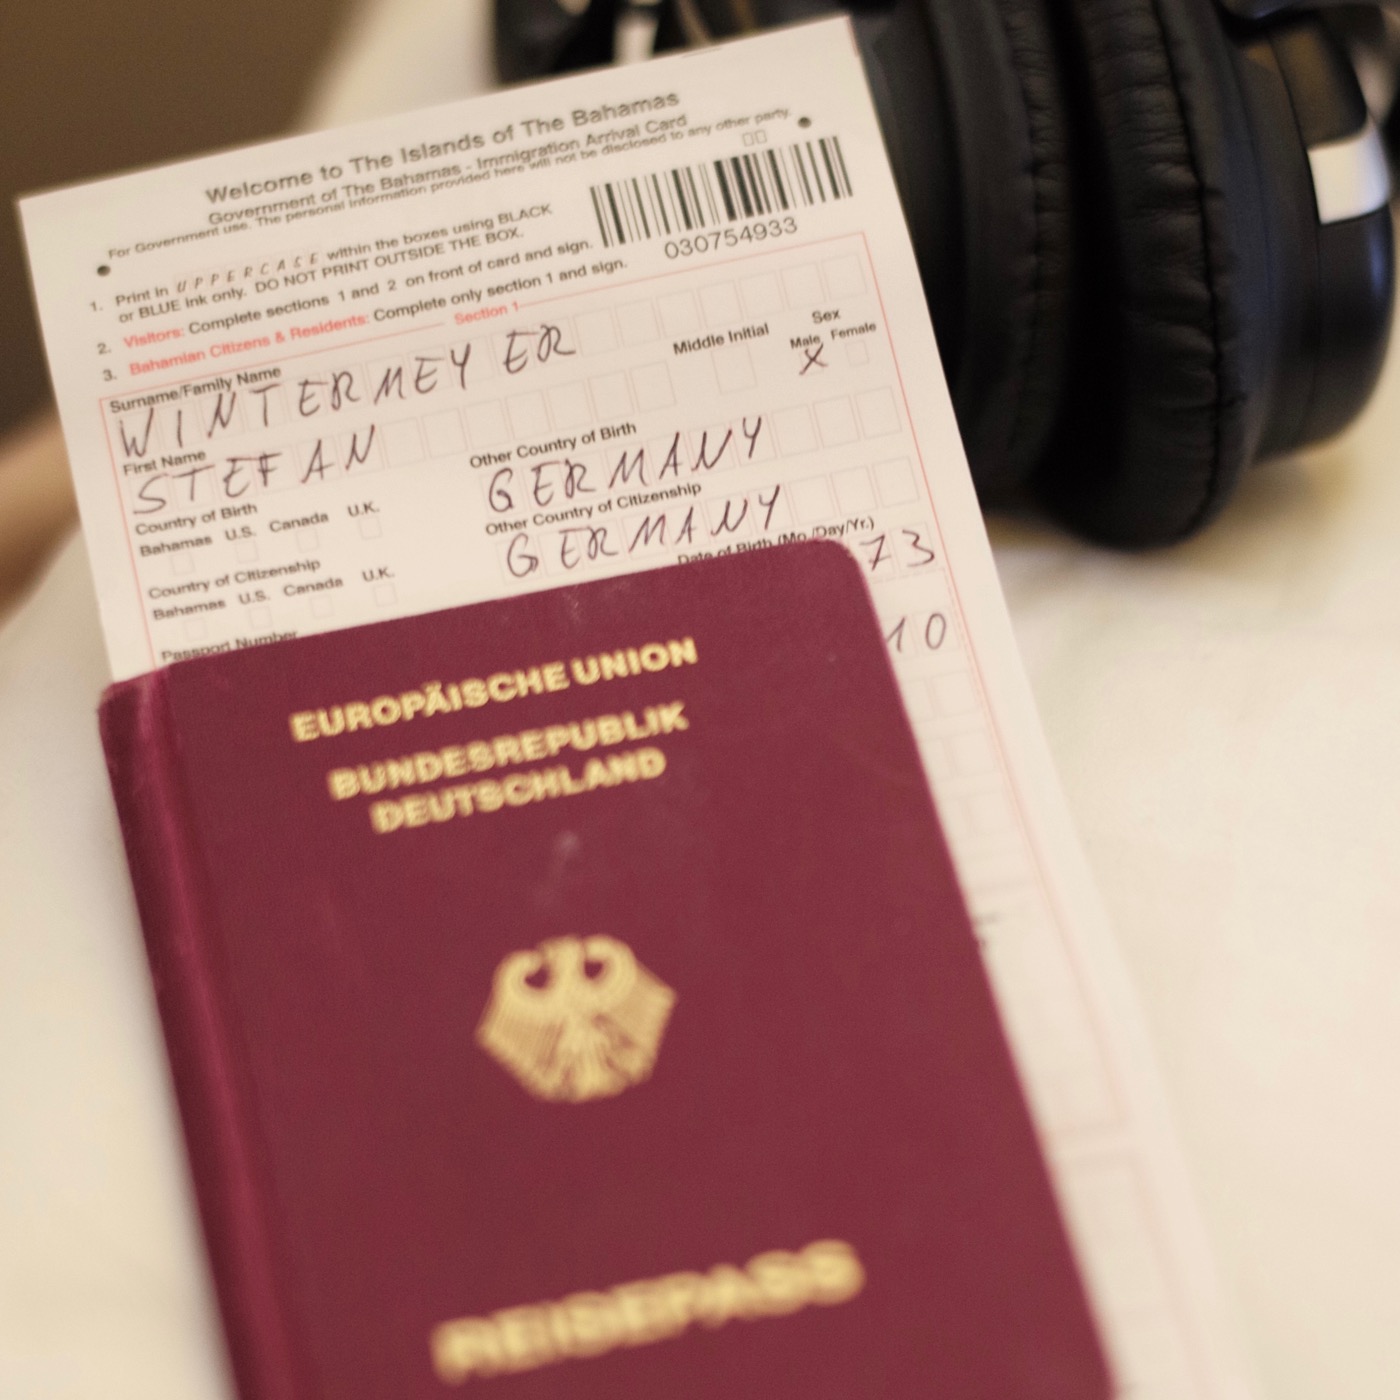 Welcome to The Islands of The Bahamas
Government of The Bahamas - Immigration Arrival Card
For Government use. The personal information provided here will not be disclosed to any other party.
1. Print in UPPERCASE within the boxes using BLACK
or BLUE ink only. DO NOT PRINT OUTSIDE THE BOX.
2. Visitors: Complete sections 1 and 2 on front of card and sign.
3. Bahamian Citizens & Residents: Complete only section 1 and sign.
030754933
Section 1
Surname/Family Name
Middle Initial
Sex
Male Female
WINTERMEYER
X
First Name
STEFAN
Other Country of Birth
GERMANY
Country of Birth
Bahamas U.S. Canada U.K.
Other Country of Citizenship
GERMANY
Country of Citizenship
Bahamas U.S. Canada U.K.
Date of Birth (Mo./Day/Yr.)
73
Passport Number
10
EUROPÄISCHE UNION
BUNDESREPUBLIK
DEUTSCHLAND
REISEPASS